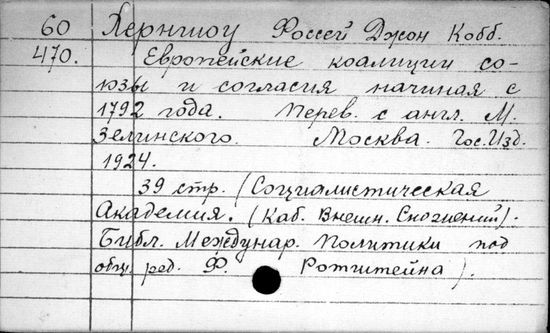 60 Херншоу Фоссей Джон Кобб.
470. Европейские коалиции со-
юзы и согласия начиная с
1792 года. Перев. с англ. М.
Зелинского. Москва. Гос.Изд.
1924.
39 стр. (Социалистическая
Академия. (Каб. Внешн. Сношений).
Библ. Междунар. Политики под
общ. ред. Ф. Ротштейна).